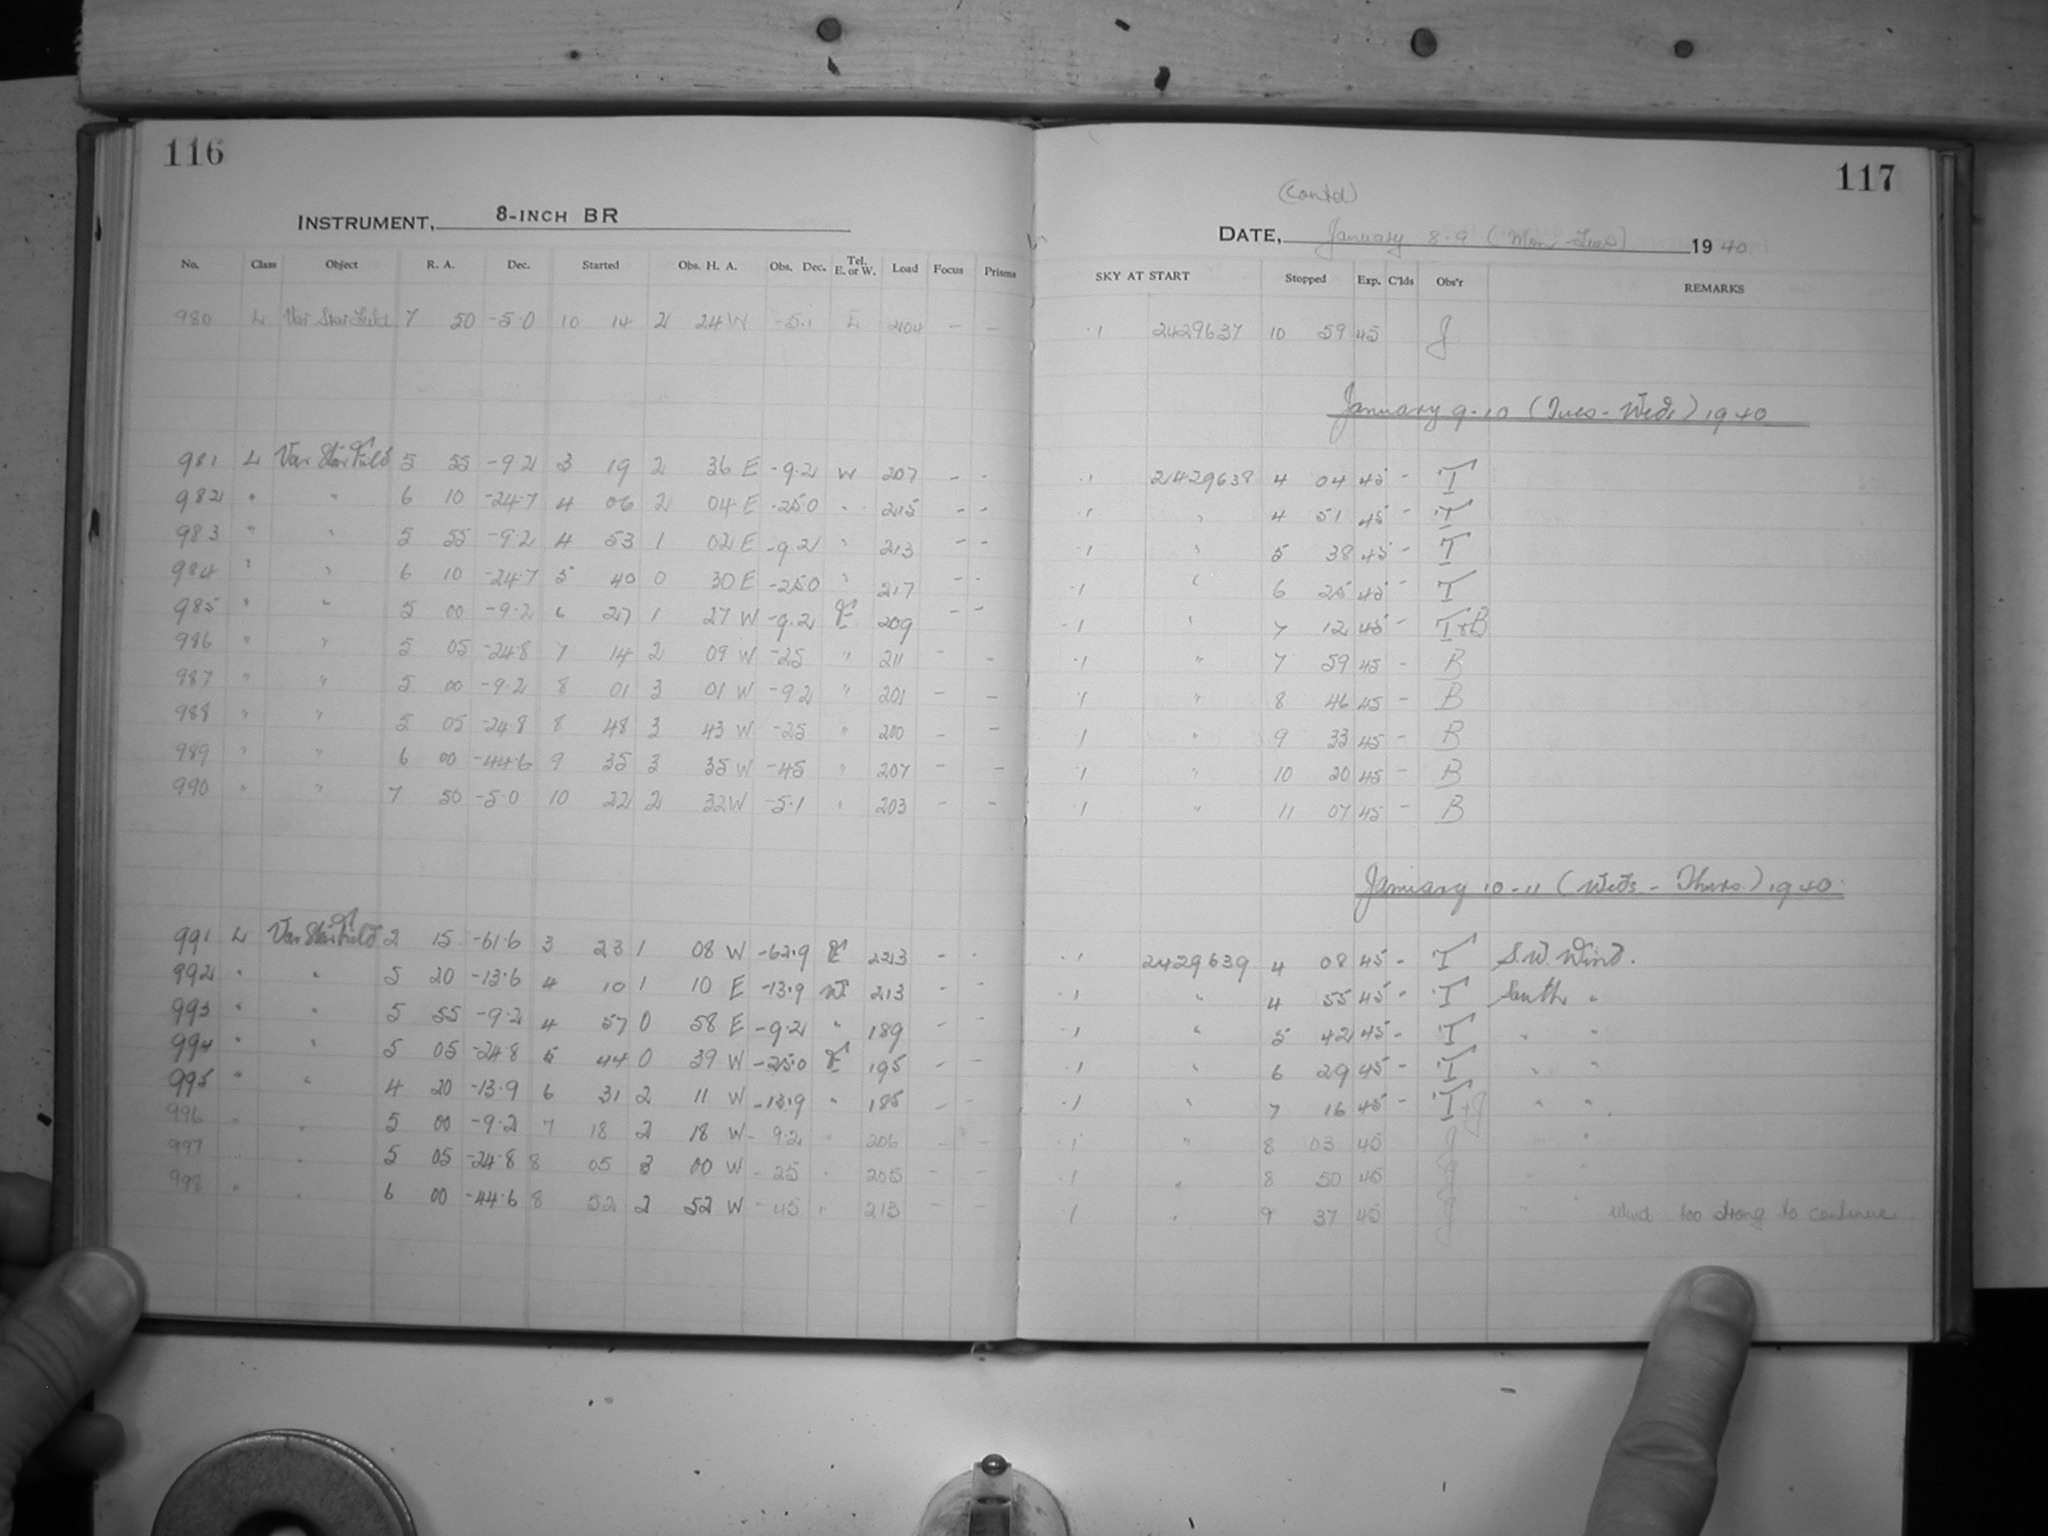 116
INSTRUMENT, 8-INCH BR
No. Class Object R. A. Dec. Started Obs. H. A. Obs. Dec. Tel. E. or W. Load Focus Prisms
980 L Var Star Field 7 50 -5.0 10 14 2 24 W -5.1 E 204 - -
981 L Var Star Field 5 55 -9.2 3 19 2 36 E -9.2 W 207 - -
982 " " 6 10 -24.7 4 06 2 04 E -25.0 " 215 - -
983 " " 5 55 -9.2 4 53 1 02 E -9.2 " 213 - -
984 " " 6 10 -24.7 5 40 0 30 E -25.0 " 217 - -
985 " " 5 00 -9.2 6 27 1 27 W -9.2 E 209 - -
986 " " 5 05 -24.8 7 14 2 09 W -25 " 211 - -
987 " " 5 00 -9.2 8 01 3 01 W -9.2 " 201 - -
988 " " 5 05 -24.8 8 48 3 43 W -25 " 200 - -
989 " " 6 00 -44.6 9 35 3 35 W -45 " 207 - -
990 " " 7 50 -5.0 10 22 2 32 W -5.1 " 203 - -
991 L Var Star Field 2 15 -61.6 3 23 1 08 W -62.9 E 223 - -
992 " " 5 20 -13.6 4 10 1 10 E -13.9 W 213 - -
993 " " 5 55 -9.2 4 57 0 58 E -9.2 " 189 - -
994 " " 5 05 -24.8 5 44 0 39 W -25.0 E 195 - -
995 " " 4 20 -13.9 6 31 2 11 W -13.9 " 185 - -
996 " " 5 00 -9.2 7 18 2 18 W -9.2 " 206 - -
997 " " 5 05 -24.8 8 05 3 00 W -25 " 205 - -
998 " " 6 00 -44.6 8 52 2 52 W -45 " 213 - -
117
(Contd)
DATE, January 8-9 (Mon-Tues) 1940
SKY AT START Stopped Exp. C'lds Obs'r REMARKS
.1 2429637 10 59 45 J
January 9-10 (Tues-Weds) 1940
.1 2429638 4 04 45 - T
.1 " 4 51 45 - T
.1 " 5 38 45 - T
.1 " 6 25 45 - T
.1 " 7 12 45 - T+B
.1 " 7 59 45 - B
.1 " 8 46 45 - B
.1 " 9 33 45 - B
.1 " 10 20 45 - B
.1 " 11 07 45 - B
January 10-11 (Weds-Thurs.) 1940.
.1 2429639 4 08 45 - T S.W. Wind.
.1 " 4 55 45 - T South "
.1 " 5 42 45 - T " "
.1 " 6 29 45 - T " "
.1 " 7 16 45 - T+J " "
.1 " 8 03 45 J " "
.1 " 8 50 45 J "
.1 " 9 37 45 J " " Wind too strong to continue